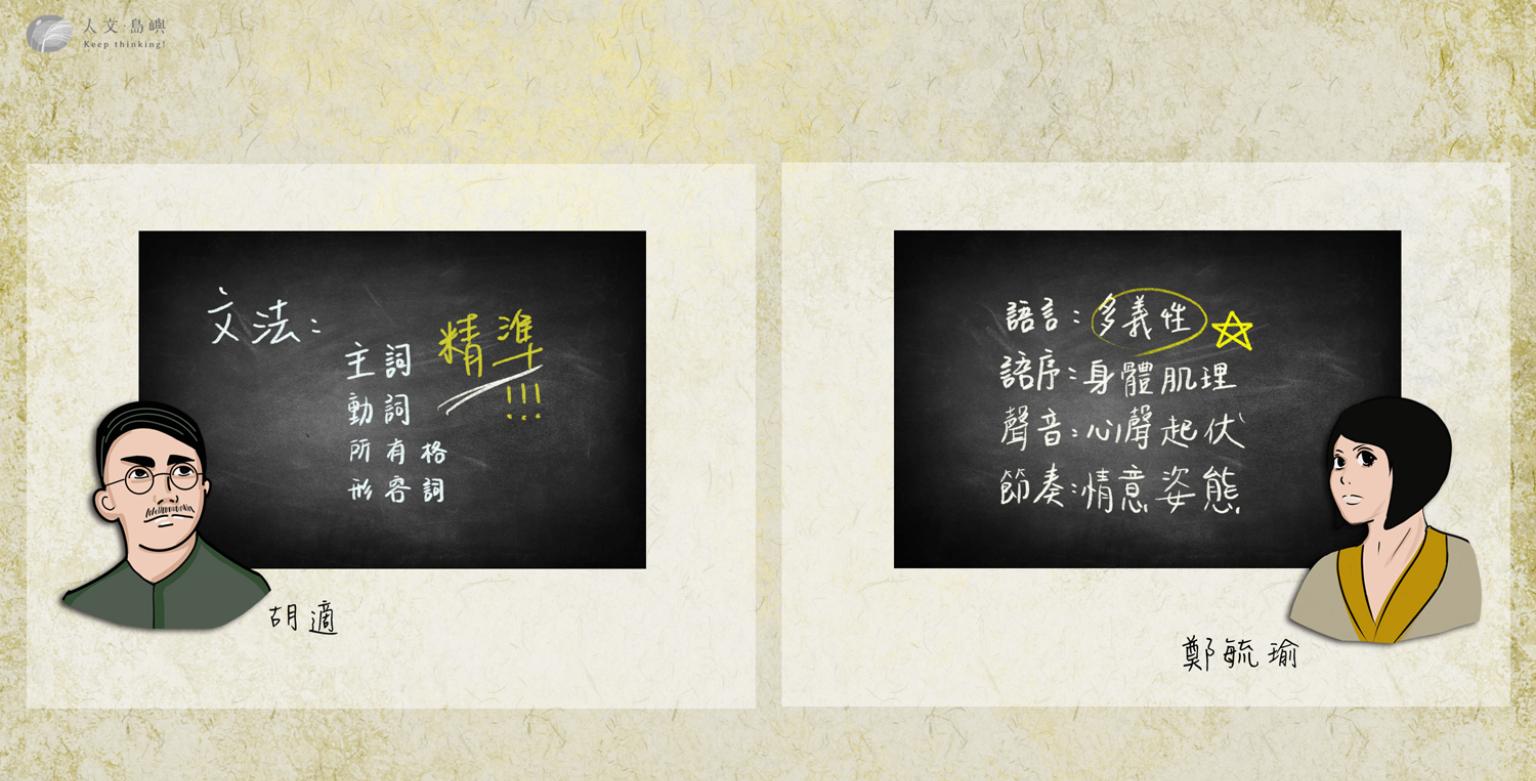 人文·島嶼
Keep thinking!
文法：
精準
!!!
主詞
動詞
所有格
形容詞
胡適
語言：多義性
語序：身體肌理
聲音：心聲起伏
節奏：情意姿態
鄭毓瑜